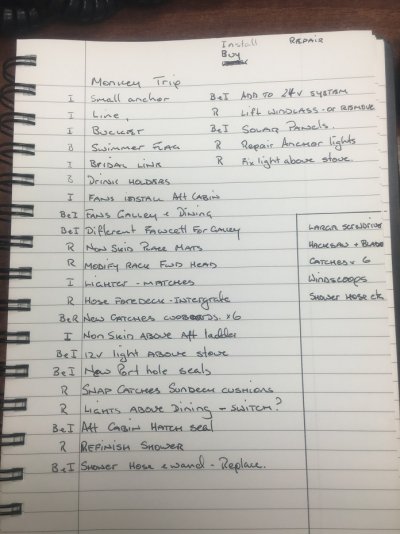 Install
Buy
REPAIR
Monkey Trip
I Small anchor
I Line,
I Bucket
B Swimmer Flag
I Bridal Line
B Drink Holders
I Fans install Aft Cabin
B&I Fans Galley & Dining
B&I Different Fawcett For Galley
R Non Skid Rack Mats
R Modify Rack Fwd Head
I Lighter - Matches
R Hose Foredeck - Intergrate
B&R New Catches cupboards. x6
I Non Skid Above Aft ladder
B&I 12v light above stove
B&I New Port hole seals
R Snap Catches Sundeck cushions
R Lights Above Dining + Switch?
B&I Aft Cabin Hatch seal
R Refinish Shower
B&I Shower Hose & wand - Replace.
B&I Add to 24v system
R Lift windlass - or remove
B&I Solar Panels.
R Repair Anchor lights
R Fix light above stove.
Large Screwdriver
Hacksaw + Blade
Catches x 6
Windscoops
Shower Hose etc